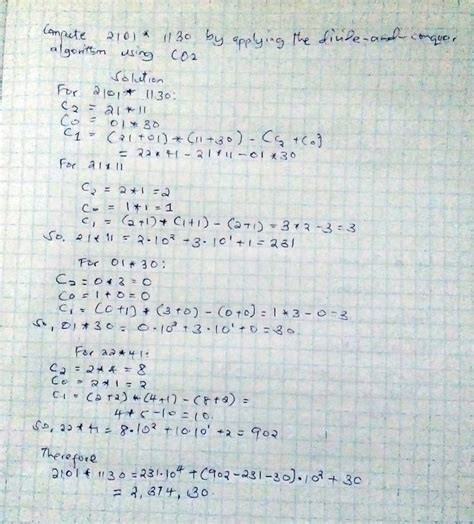 Compute 2101 * 1130 by applying the divide-and-conquer
algorithm using CO2
Solution
For 2101 * 1130:
C2 = 21 * 11
C0 = 01 * 30
C1 = (21 + 01) * (11 + 30) - (C2 + C0)
= 22 * 41 - 21 * 11 - 01 * 30
For 21 * 11
C2 = 2 * 1 = 2
C0 = 1 * 1 = 1
C1 = (2+1) * (1+1) - (2+1) = 3 * 2 - 3 = 3
So, 21 * 11 = 2·10² + 3·10¹ + 1 = 231
For 01 * 30:
C2 = 0 * 3 = 0
C0 = 1 + 0 = 0
C1 = (0+1) * (3+0) - (0+0) = 1 * 3 - 0 = 3
So, 01 * 30 = 0·10² + 3·10¹ + 0 = 30.
For 22 * 41:
C2 = 2 * 4 = 8
C0 = 2 * 1 = 2
C1 = (2+2) * (4+1) - (8+2) =
4 * 5 - 10 = 10.
So, 22 * 41 = 8·10² + 10·10¹ + 2 = 902
Therefore
2101 * 1130 = 231·10⁴ + (902 - 231 - 30)·10² + 30
= 2,374,130.